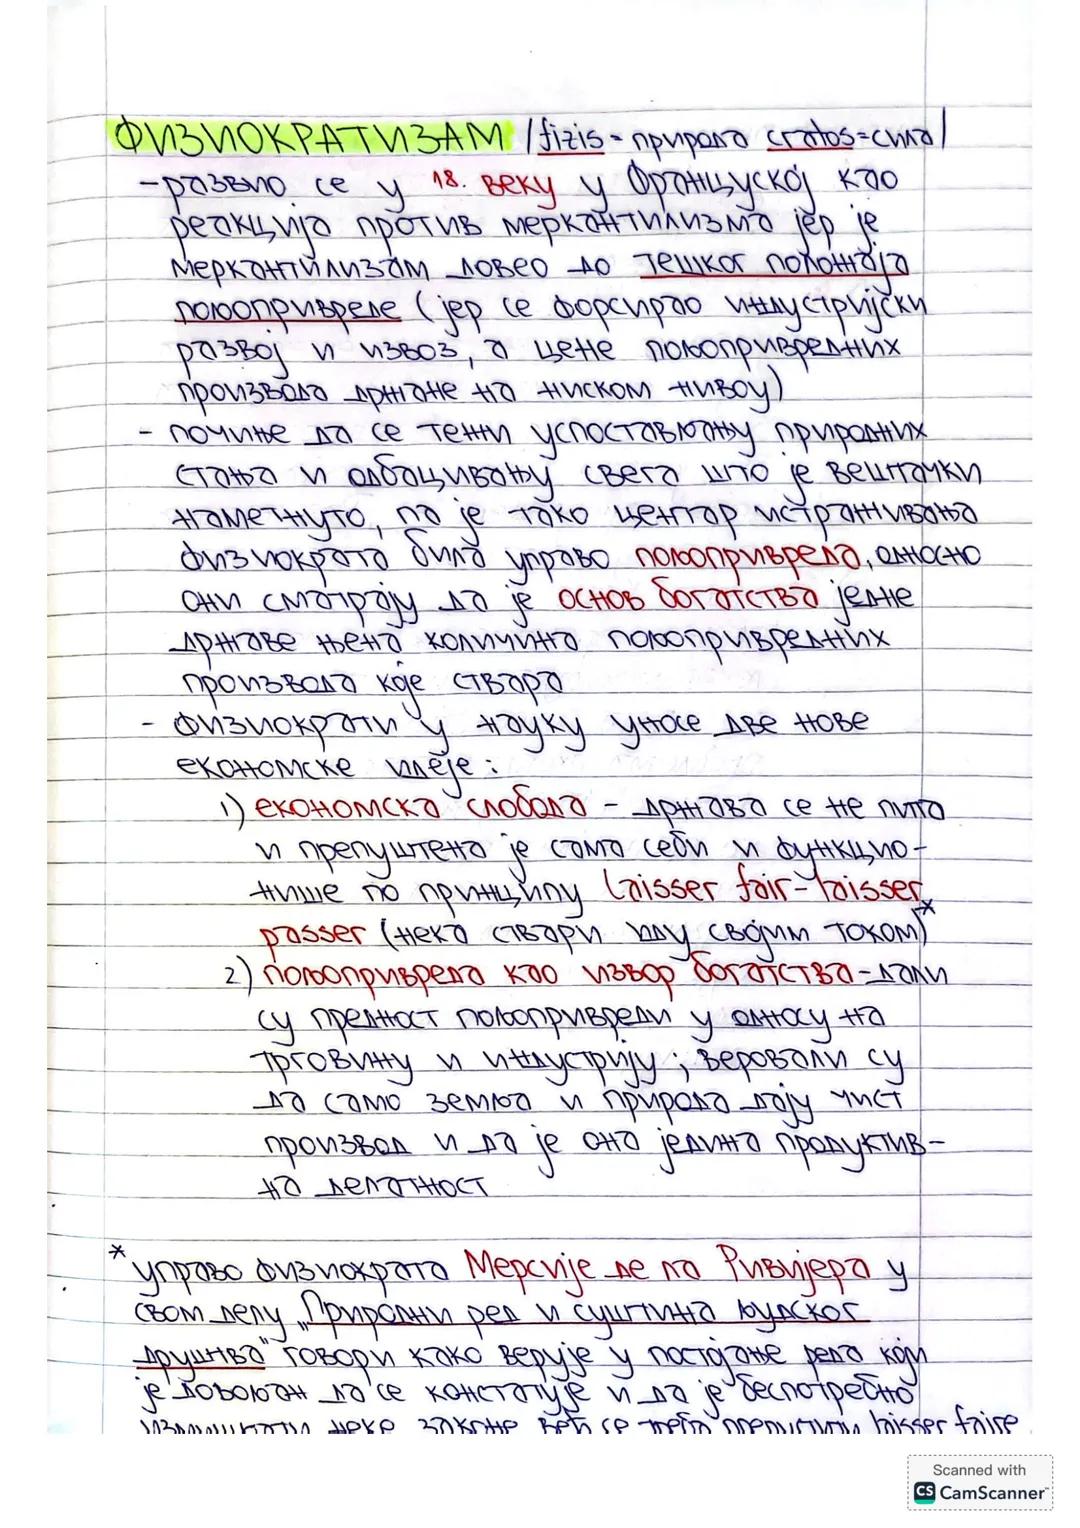 ФИЗИОКРАТИЗАМ /fizis - природа cratos=сила/
- развио се у 18. веку у Француској као
реакција против меркантилизма јер је
меркантилизам довео до тешког положаја
пољопривреде (јер се форсирао индустријски
развој и извоз, а цене пољопривредних
производа држане на ниском нивоу)
- почиње да се тежи успостављању природних
стања и одбацивању свега што је вештачки
наметнуто, па је тако центар истраживања
физиократа била управо пољопривреда, односно
они сматрају да је основ богатства једне
државе њена количина пољопривредних
производа које ствара
- физиократи у науку уносе две нове
економске идеје:
1) економска слобода - држава се не пита
и препуштена је сама себи и функцио-
нише по принципу laisser fair-laisser
passer (нека ствари иду својим током)*
2) пољопривреда као извор богатства - дали
су предност пољопривреди у односу на
трговину и индустрију; веровали су
да само земља и природа дају чист
производ и да је она једина продуктив-
на делатност
* управо физиократа Мерсије де ла Ривијера у
свом делу „Природни ред и суштина људског
друштва" говори како верује у постојање реда који
је довољан да се констатује и да је беспотребно
измишљати неке законе већ се треба препустити laisser faire
Scanned with
CS CamScanner